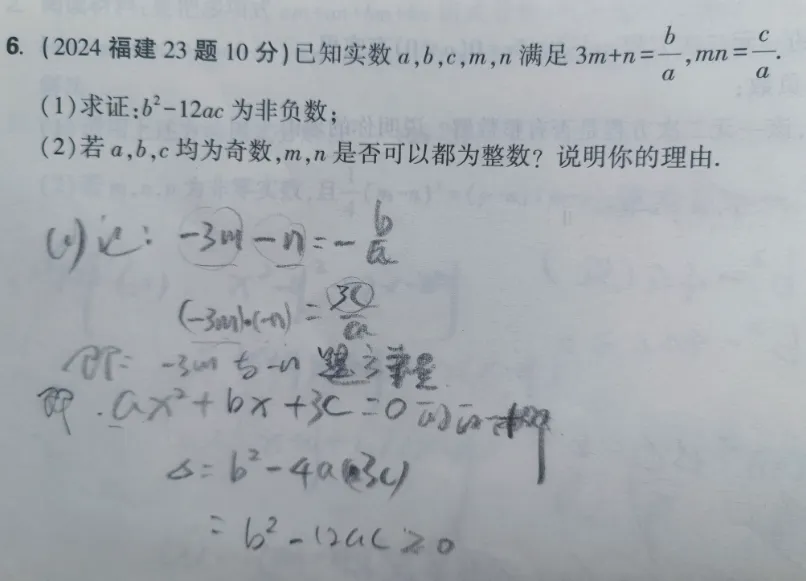 6. (2024福建23题10分)已知实数a,b,c,m,n满足3m+n=b/a,mn=c/a.
(1)求证:b²-12ac为非负数;
(2)若a,b,c均为奇数,m,n是否可以都为整数?说明你的理由.
(1)证: -3m-n=-b/a
(-3m)·(-n)=3c/a
即: -3m与-n是方程
即 ax²+bx+3c=0的两
Δ=b²-4a(3c)
=b²-12ac≥0